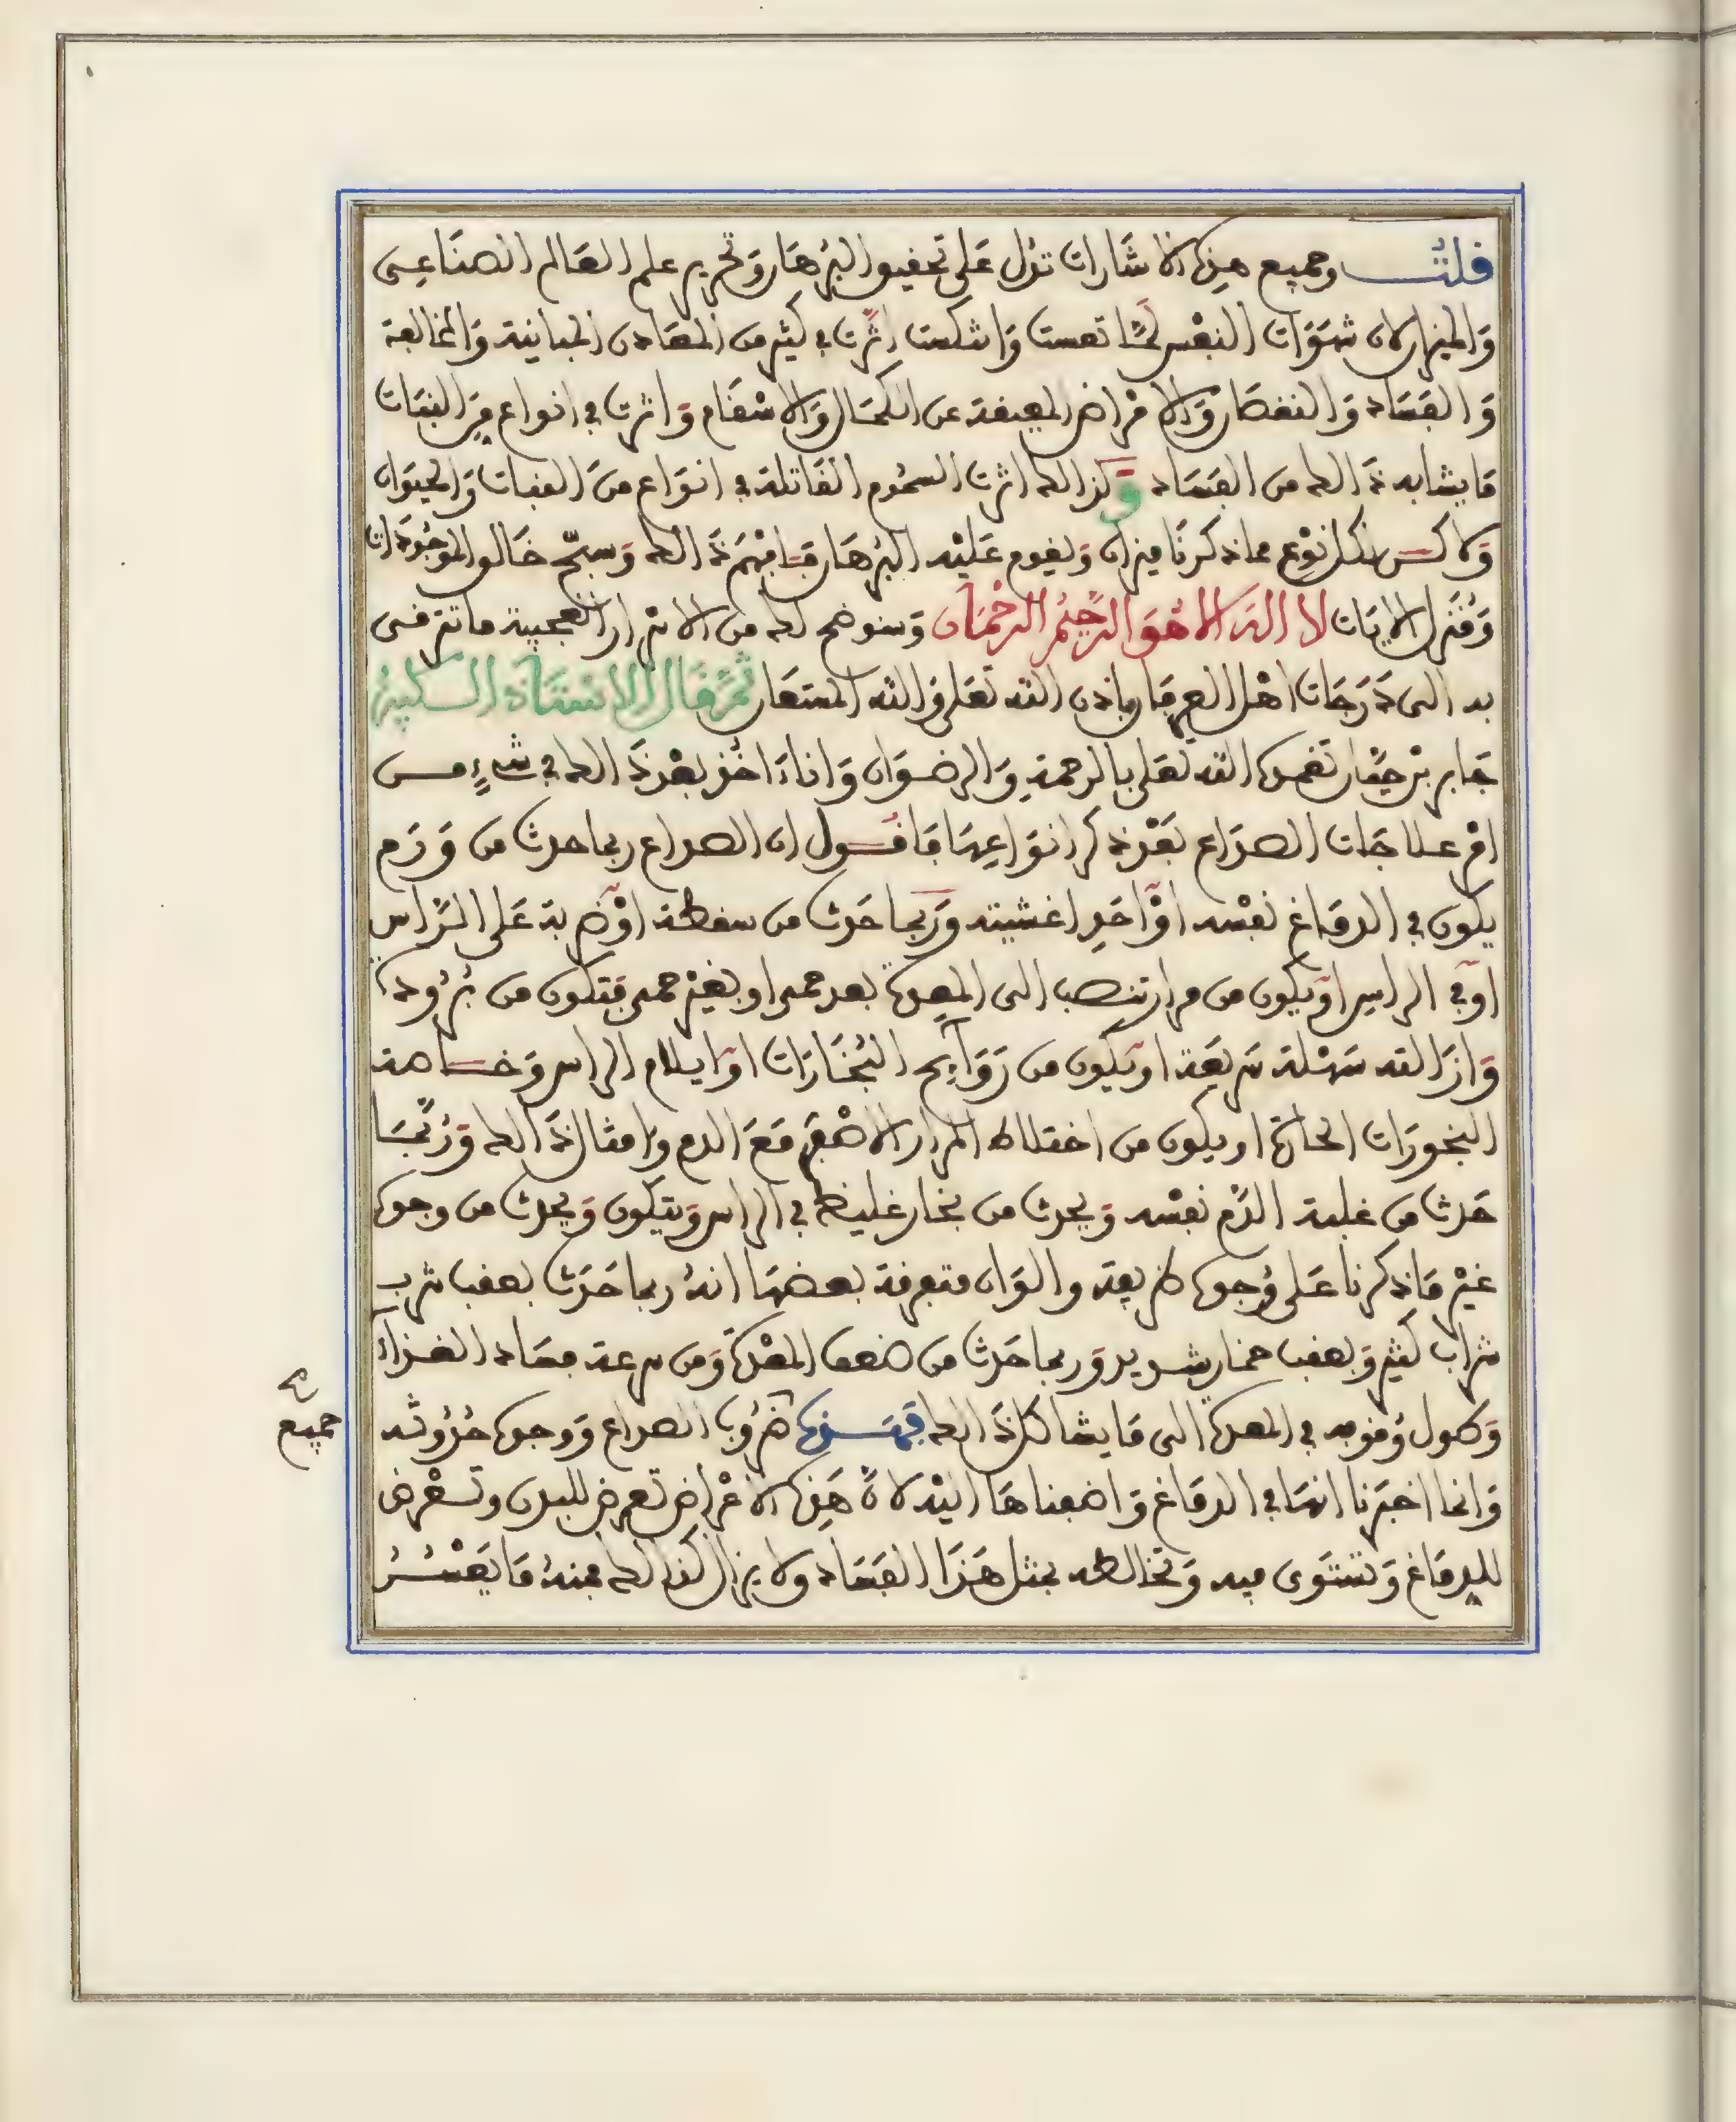 قلت وجميع هذه الاشارات تدل على تحقيق البرهان وتحرير علم العالم الصناعى
والميزان لان شهوات النفس لما تعست وانتكست اثرت في كثير من المعادن المباينة والمخالفة
والفساد والنقصان والامراض المعيقة عن الكمال والاسقام واثرت في انواع من النبات
ما يشابه ذالك من الفساد وكذالك اثرت السموم القاتلة في انواع من النبات والحيوان
ولاكن لكل نوع مما ذكرنا ميزان ويقوم عليه البرهان فافهم ذالك وسبح خالق الموجودات
ومنزل الايات لا اله الا هو الرحيم الرحمان وسنوضح لك من الاسرار العجيبة ما تترقى
به الى درجات اهل العرفان باذن الله تعلى والله المستعان ثم قال الاستاذ الكبير
جابر بن حيان تغمده الله تعلى بالرحمة والرضوان وانا اخذ بعد ذالك في شيء من
امر علاجات الصداع بعد ذكر انواعها فاقول ان الصداع ربما حدث من ورم
يكون في الدماغ نفسه او احد اغشيته وربما حدث من سقطة او ضربة على الراس
او في الراس او يكون من مرار تنصب الى المعدة بعد حمى او بغير حمى فتكون من برودة
وازالته سهلة سريعة او يكون من روايح البخارات او ايلام الراس وخاصة
البخورات الحارة او يكون من اختلاط المرار الاصفر مع الدم وامثال ذالك وربما
حدث من غلبة الدم نفسه ويحدث من بخار غليظ في الراس ويتكون ويحدث من وجوه
غير ما ذكرنا على وجوه طريفة والوان متفرقة بعضها انه ربما حدث بعقب شرب
شراب كثير وبعقب خمار شديد وربما حدث من ضعف المعدة ومن سرعة فساد الغذاء
وطول وقوفه في المعدة الى ما يشاكل ذالك فهذه ضروب الصداع ووجوه حدوثه
وانما اخبرنا انها في الدماغ واضفناها اليه لان هذه الاعراض تعرض للبدن وتعرض
للدماغ وتستوى فيه وتخالطه بمثل هذا الفساد ولا يزال كذالك فمنه ما يعسر
جميع